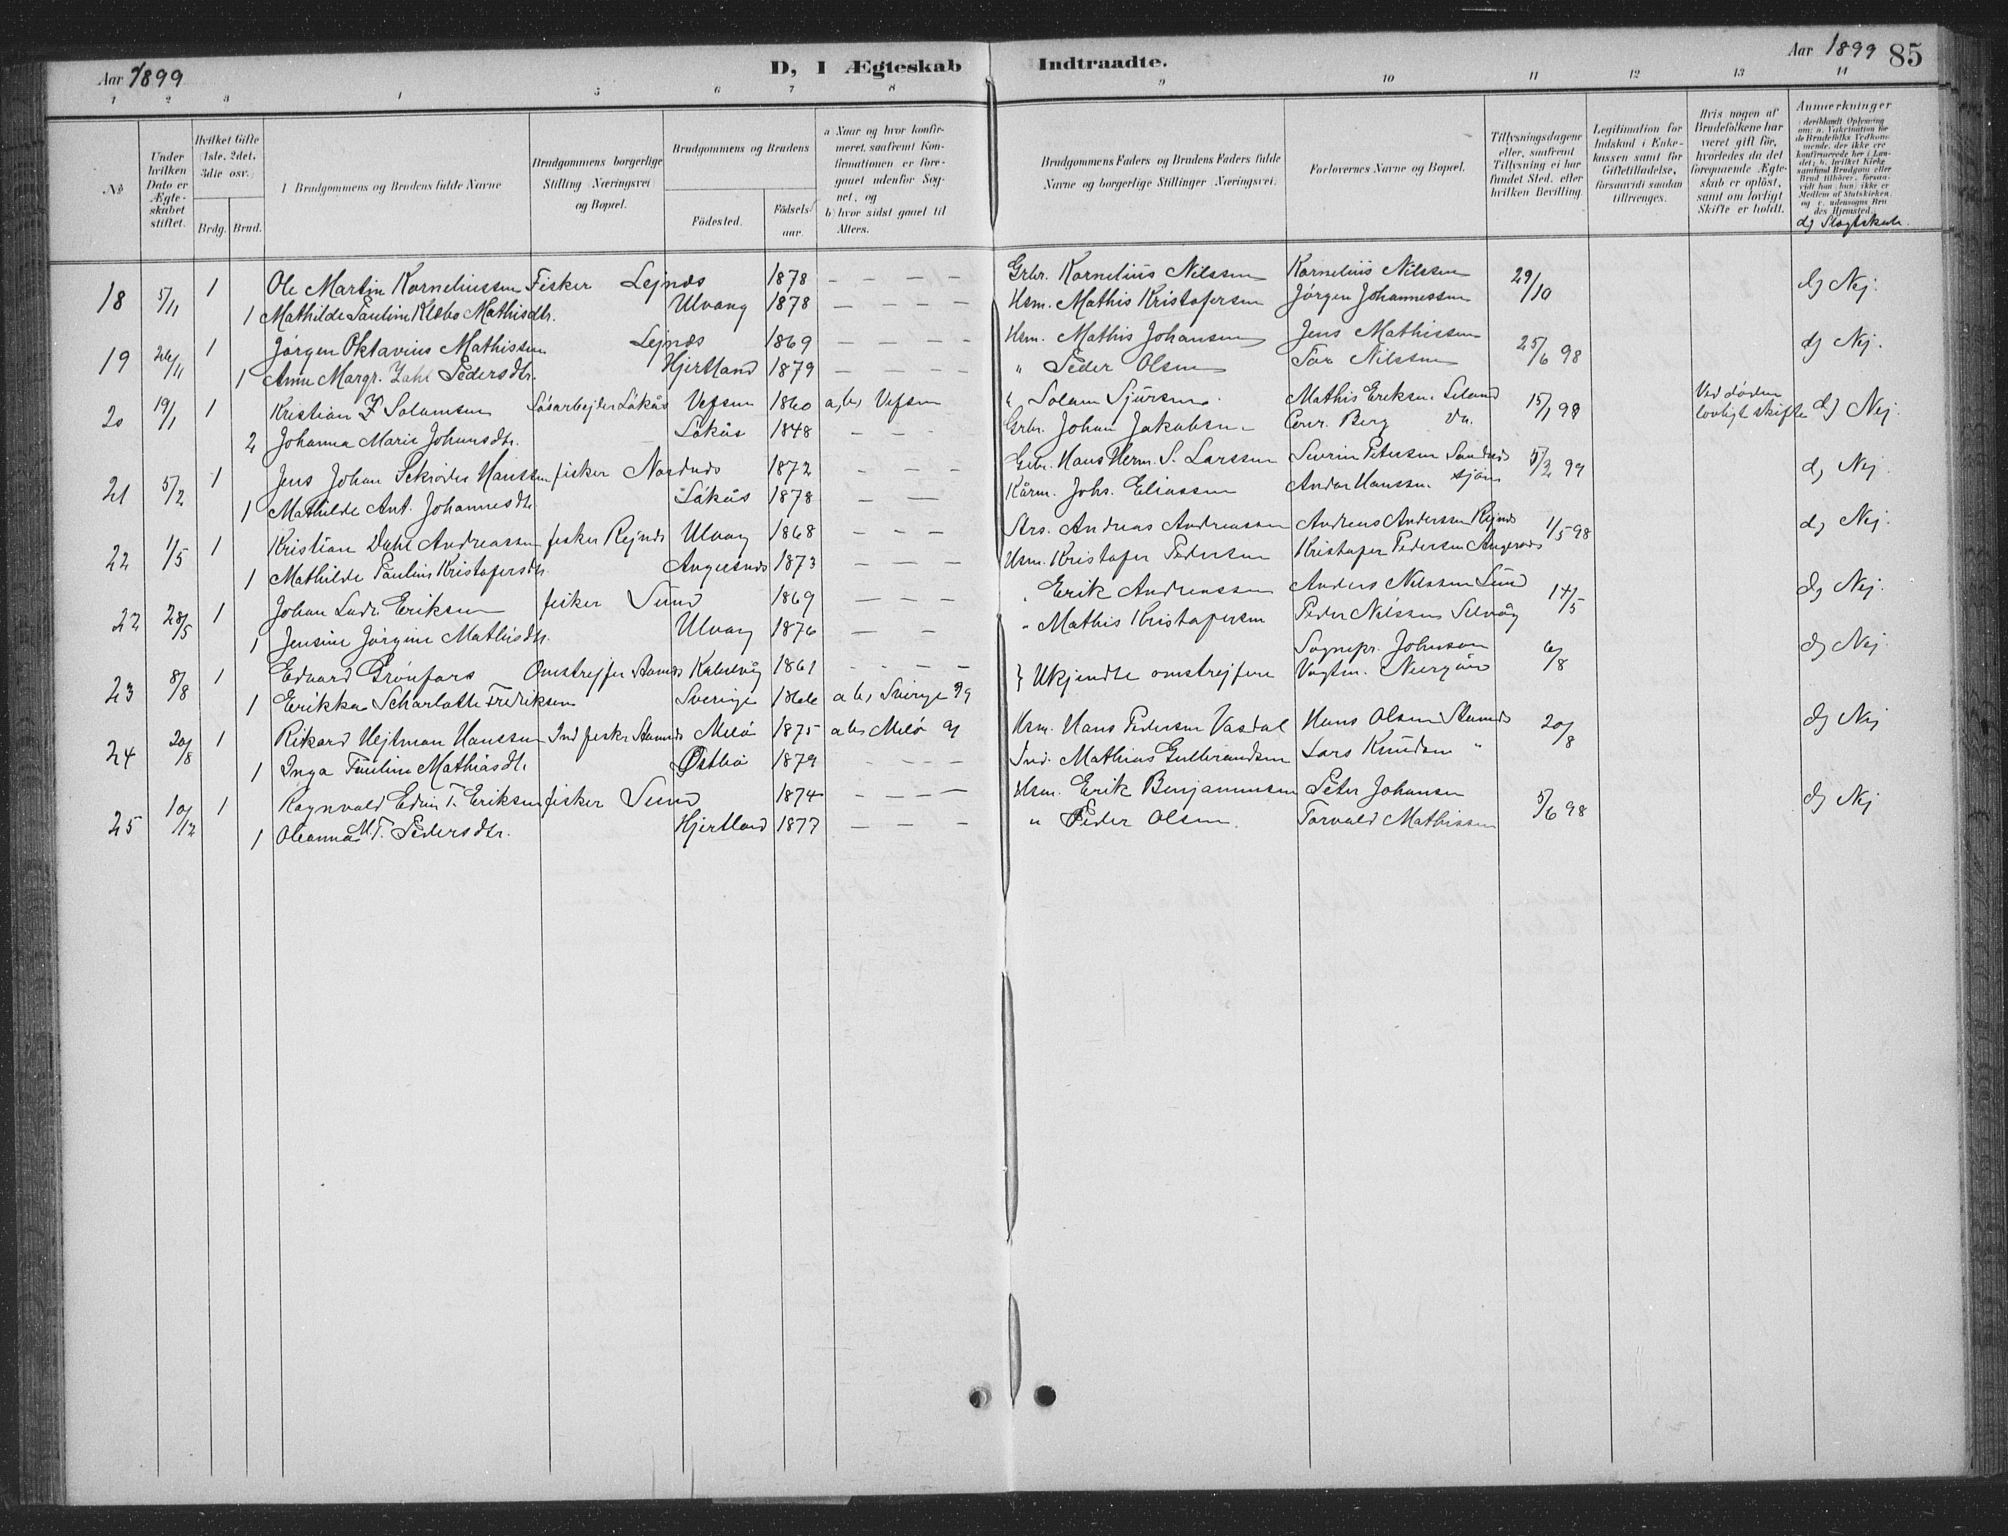 Aar 1899
D, I Ægteskab Indtraadte.
Aar 1899 85
1 2 3 4 5 6 7 8 9 10 11 12 13 14
No.
Under hvilken Dato er Ægteskabet stiftet.
Hvilket Gifte 1ste, 2det, 3die osv.
Brdg. Brud.
Brudgommens og Brudens fulde Navne
Brudgommens borgerlige Stilling Næringsvei og Bopæl.
Brudgommens og Brudens
Födested. Födselsaar.
a Naar og hvor konfirmeret, saafremt Konfirmationen er foregaaet udenfor Sognet, og
b) hvor sidst gaaet til Alters.
Brudgommens Faders og Brudens Faders fulde Navne og borgerlige Stillinger (Næringsvei.
Forlovernes Navne og Bopæl.
Tillysningsdagene eller, saafremt Tillysning ei har fundet Sted, efter hvilken Bevilling
Legitimation for Indskud i Enkekassen samt for Giftetilladelse, forsaavidt saadan tiltrænges.
Hvis nogen af Brudefolkene har været gift før, hvorledes da det foregaaende Ægteskab er opløst, samt om lovligt Skifte er holdt.
Anmærkninger
d) Slægtskab.
18 5/11 1 Ole Martin Korneliussen Fisker Lejnæs 1878 – – – – Grbr. Kornelius Nilssen Kornelius Nilssen 29/10 d) Nej.
1 Mathilde Pauline Klebo Mathisdtr. Ulvang 1878 – – – – Hsm. Mathis Kristofersen Jörgen Johannessen
19 26/11 1 Jörgen Oktavius Mathissen Lejnæs 1869 – – – – Hsm. Mathis Johansen Jens Mathissen 25/6 98 d) Nej.
1 Anne Margr. Zahl Pedersdtr. Hjertland 1879 – – – – " Peder Olsen Tor Nilssen
20 19/1 1 Kristian Z Solumsen Løsarbejder Låkås Vefsen 1860 a, b, Vefsen " Solum Sjursen Mathis Eriksen Leland 15/1 98 Ved døden lovligt skifte d) Nej.
2 Johanna Marie Johansdtr. Låkås 1848 – – – Grbr. Johan Jakobsen Conr. Berg
21 5/2 1 Jens Johan Hanssen fisker Nordnæs 1872 – – – Grbr. Hans Herm. S. Larssen Severin Petersen 5/2 99 d) Nej.
1 Mathilde Ant. Johannesdtr Låkås 1878 – – Kårm. Johs. Eliassen Andor Hanssen
22 1/5 1 Kristian Dahl Andreassen fisker Rejnæs Ulvang 1868 – – – Strs. Andreas Andreassen Andreas Anderssen Rejnæs 1/5 98 d) Nej.
1 Mathilde Pauline Kristofersdtr. Angersnæs 1873 – – – Hsm. Kristofer Pedersen Kristofer Pedersen Angersnæs
22 28/5 1 Johan Ludv. Eriksen fisker Sund 1869 – – – " Erik Andreassen Anders Nilssen Sund 14/5 d) Nej.
1 Jensine Jørgine Mathisdtr. Ulvang 1876 – – " Mathis Kristofersen Peder Nilssen Selvåg
23 8/8 1 Edvard Grønfors Omstrejfer Kabelvåg 1861 – – – – } Ukjendte omstrejfere Sognepr. Johnson 6/8 d) Nej.
1 Erikka Scharlotte Fredriksen Sverige 1866 a, b, Sverige 99 Vogtm. Neergård
24 20/8 1 Rikard Hejtman Hanssen Ind. fisker Stamnæs Melø 1875 a, b, Melø 91 Hsm. Hans Pedersen Vasdal Hans Olsen Stamnæs 20/8 d) Nej
1 Inga Pauline Mathiasdtr Østbø 1879 – – – Ind. Mathias Gulbrandsen Lars Knudsen "
25 10/12 1 Ragnvald Edvin T. Eriksen fisker Sund 1874 – – – – Hsm. Erik Benjaminsen Peter Johansen 5/6 98 d) Nej
1 Oleanna M. T. Pedersdtr. Hjertland 1877 – – – " Peder Olsen. Torvald Mathissen